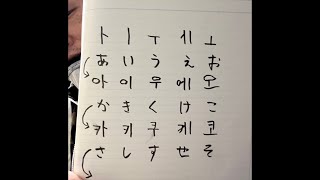 ㅏ ㅣ ㅜ ㅔ ㅗ
あ い う え お
아 이 우 에 오
か き く け こ
카 키 쿠 케 코
さ し す せ そ